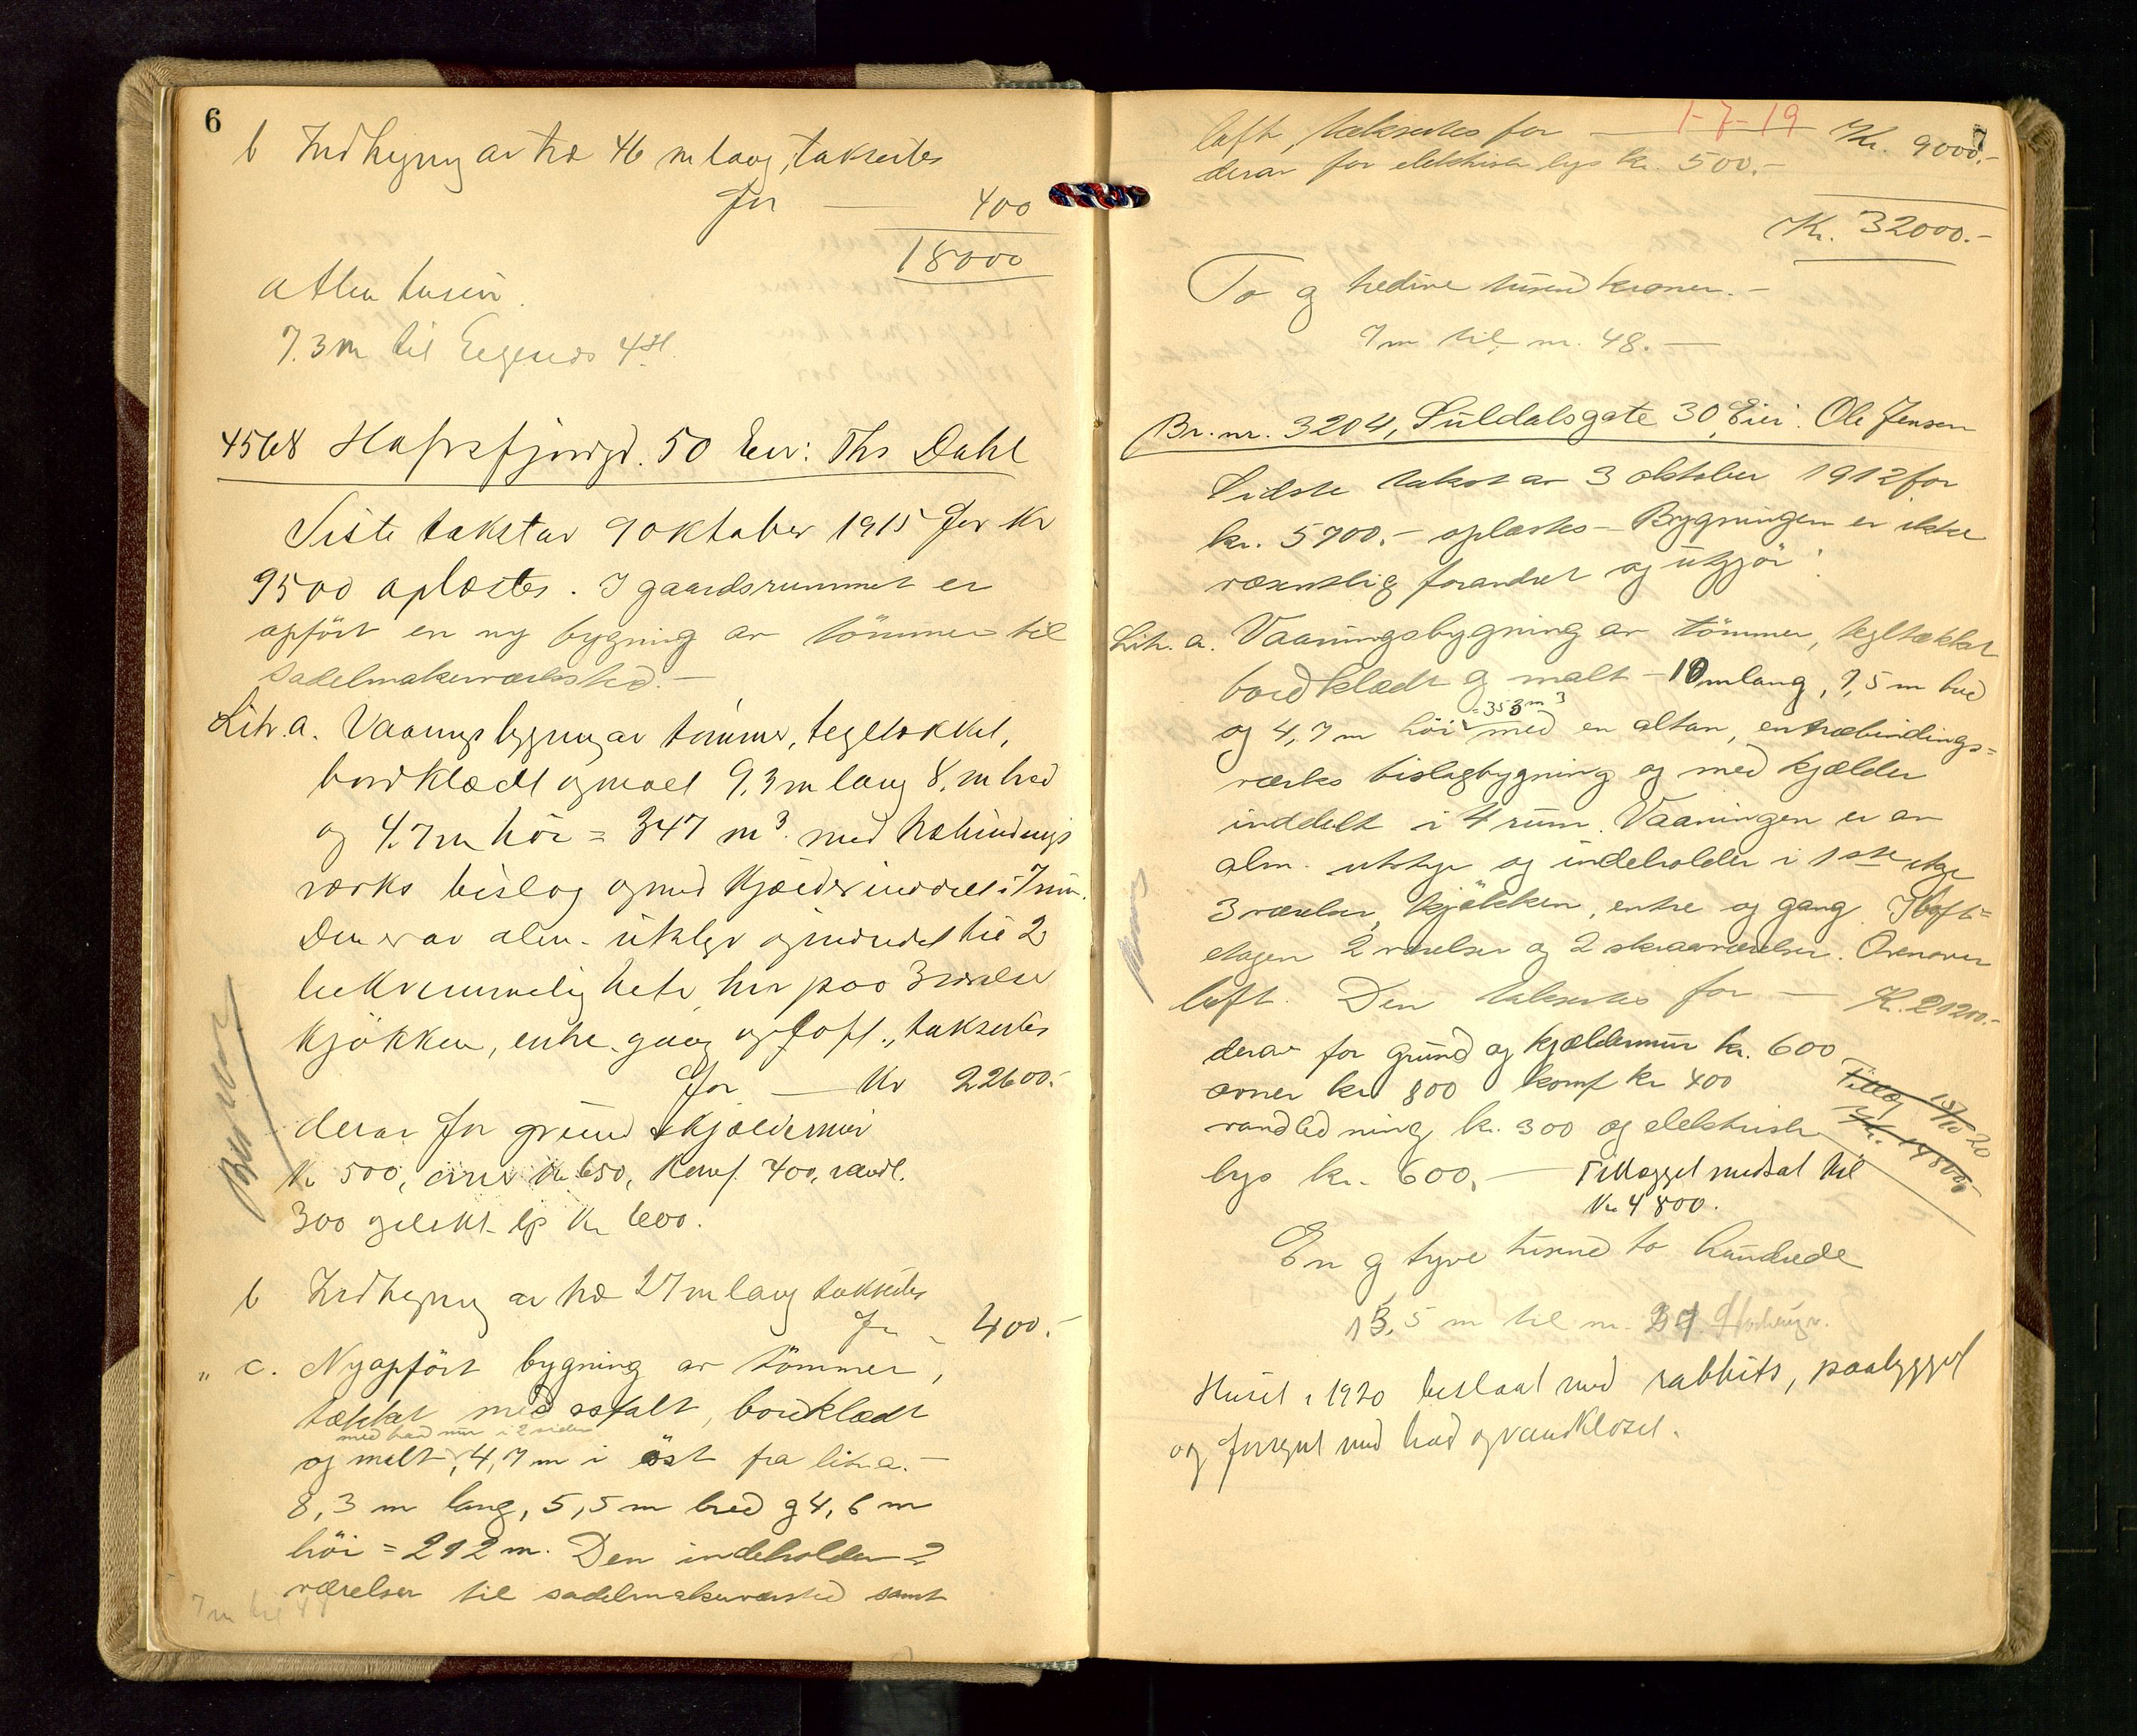 6
b Indhegning av træ 46 m lang, taksertes
for — 400
18000
Atten tusen.
7.3 m til
4568 Hafrsfjordgt. 50 Eier: Ths Dahl
Siste takst av 9 oktober 1915 for Kr
9500 oplæstes. I gaardsrummet er
opført en ny bygning av tømmer til
sadelmakerverksted.—
Litr. a. Vaaningsbygning av tømmer, tegltækket,
bordklædt og malt 9,3 m lang 8, m bred
og 4.7 m høi = 347 m³. med træbindings
verks bislag og med kjælder inddelt i 7 rum.
Den er av alm. utstyr og indredet til 2
bekvemmeligheter hver paa 3 værelser
kjøkken, entre, gang og loft, taksertes
for — Kr 22600.-
derav for grund & kjældermur
kr 500, ovner kr 650, komf. 400, vandl.
300 og elekt. lys kr 600.
b Indhegning av træ 27 m lang taksertes
for - 400.-
" c. Nyopført bygning av tömmer,
tækket med asfalt, bordklædt
med brandmur i 2 sider
og malt, 4,7 m i öst fra litr. a. —
8,3 m lang, 5,5 m bred og 4,6 m
höi = 212 m. Den indeholder 2
værelser til sadelmakerverksted samt
7 m til
7
loft, taksertes for — 1-7-19 Kr. 9000.-
derav for elektrisk lys kr. 500.-
Kr. 32000.-
To og tredive tusend kroner.—
7 m til nr. 48.—
Br. nr. 3204, Suldalsgate 30, Eier: Ole Jensen
Sidste takst av 3 oktober 1912 for
kr. 5700.- oplæstes — Bygningen er ikke
væsentlig forandret og utgjör:
Litr. a. Vaaningsbygning av tömmer, tegltækket
bordklædt og malt — 10 m lang, 7,5 m bred
= 353 m³
og 4,7 m höi med en altan, en træbindings=
verks bislagbygning og med kjælder
inddelt i 4 rum. Vaaningen er av
alm. utstyr og indeholder i 1ste etage
3 værelser, kjøkken, entre og gang. I loft=
etagen 2 værelser og 2 skraaværelser. Ovenover
loft. Den taksertes for — Kr. 21200.-
derav for grund og kjældermur kr. 600
ovner kr 800 komf kr 400
Tillæg 15/10-20
Kr. 14800
vandledning kr. 300 og elektrisk
lys kr. 600.— Tillægget nedsat til
Kr 4800.
En og tyve tusend to hundrede
13,5 m til nr.
Huset i 1920 beslaat med rabbits, paabygget
og forsynt med bad og vandkloset.